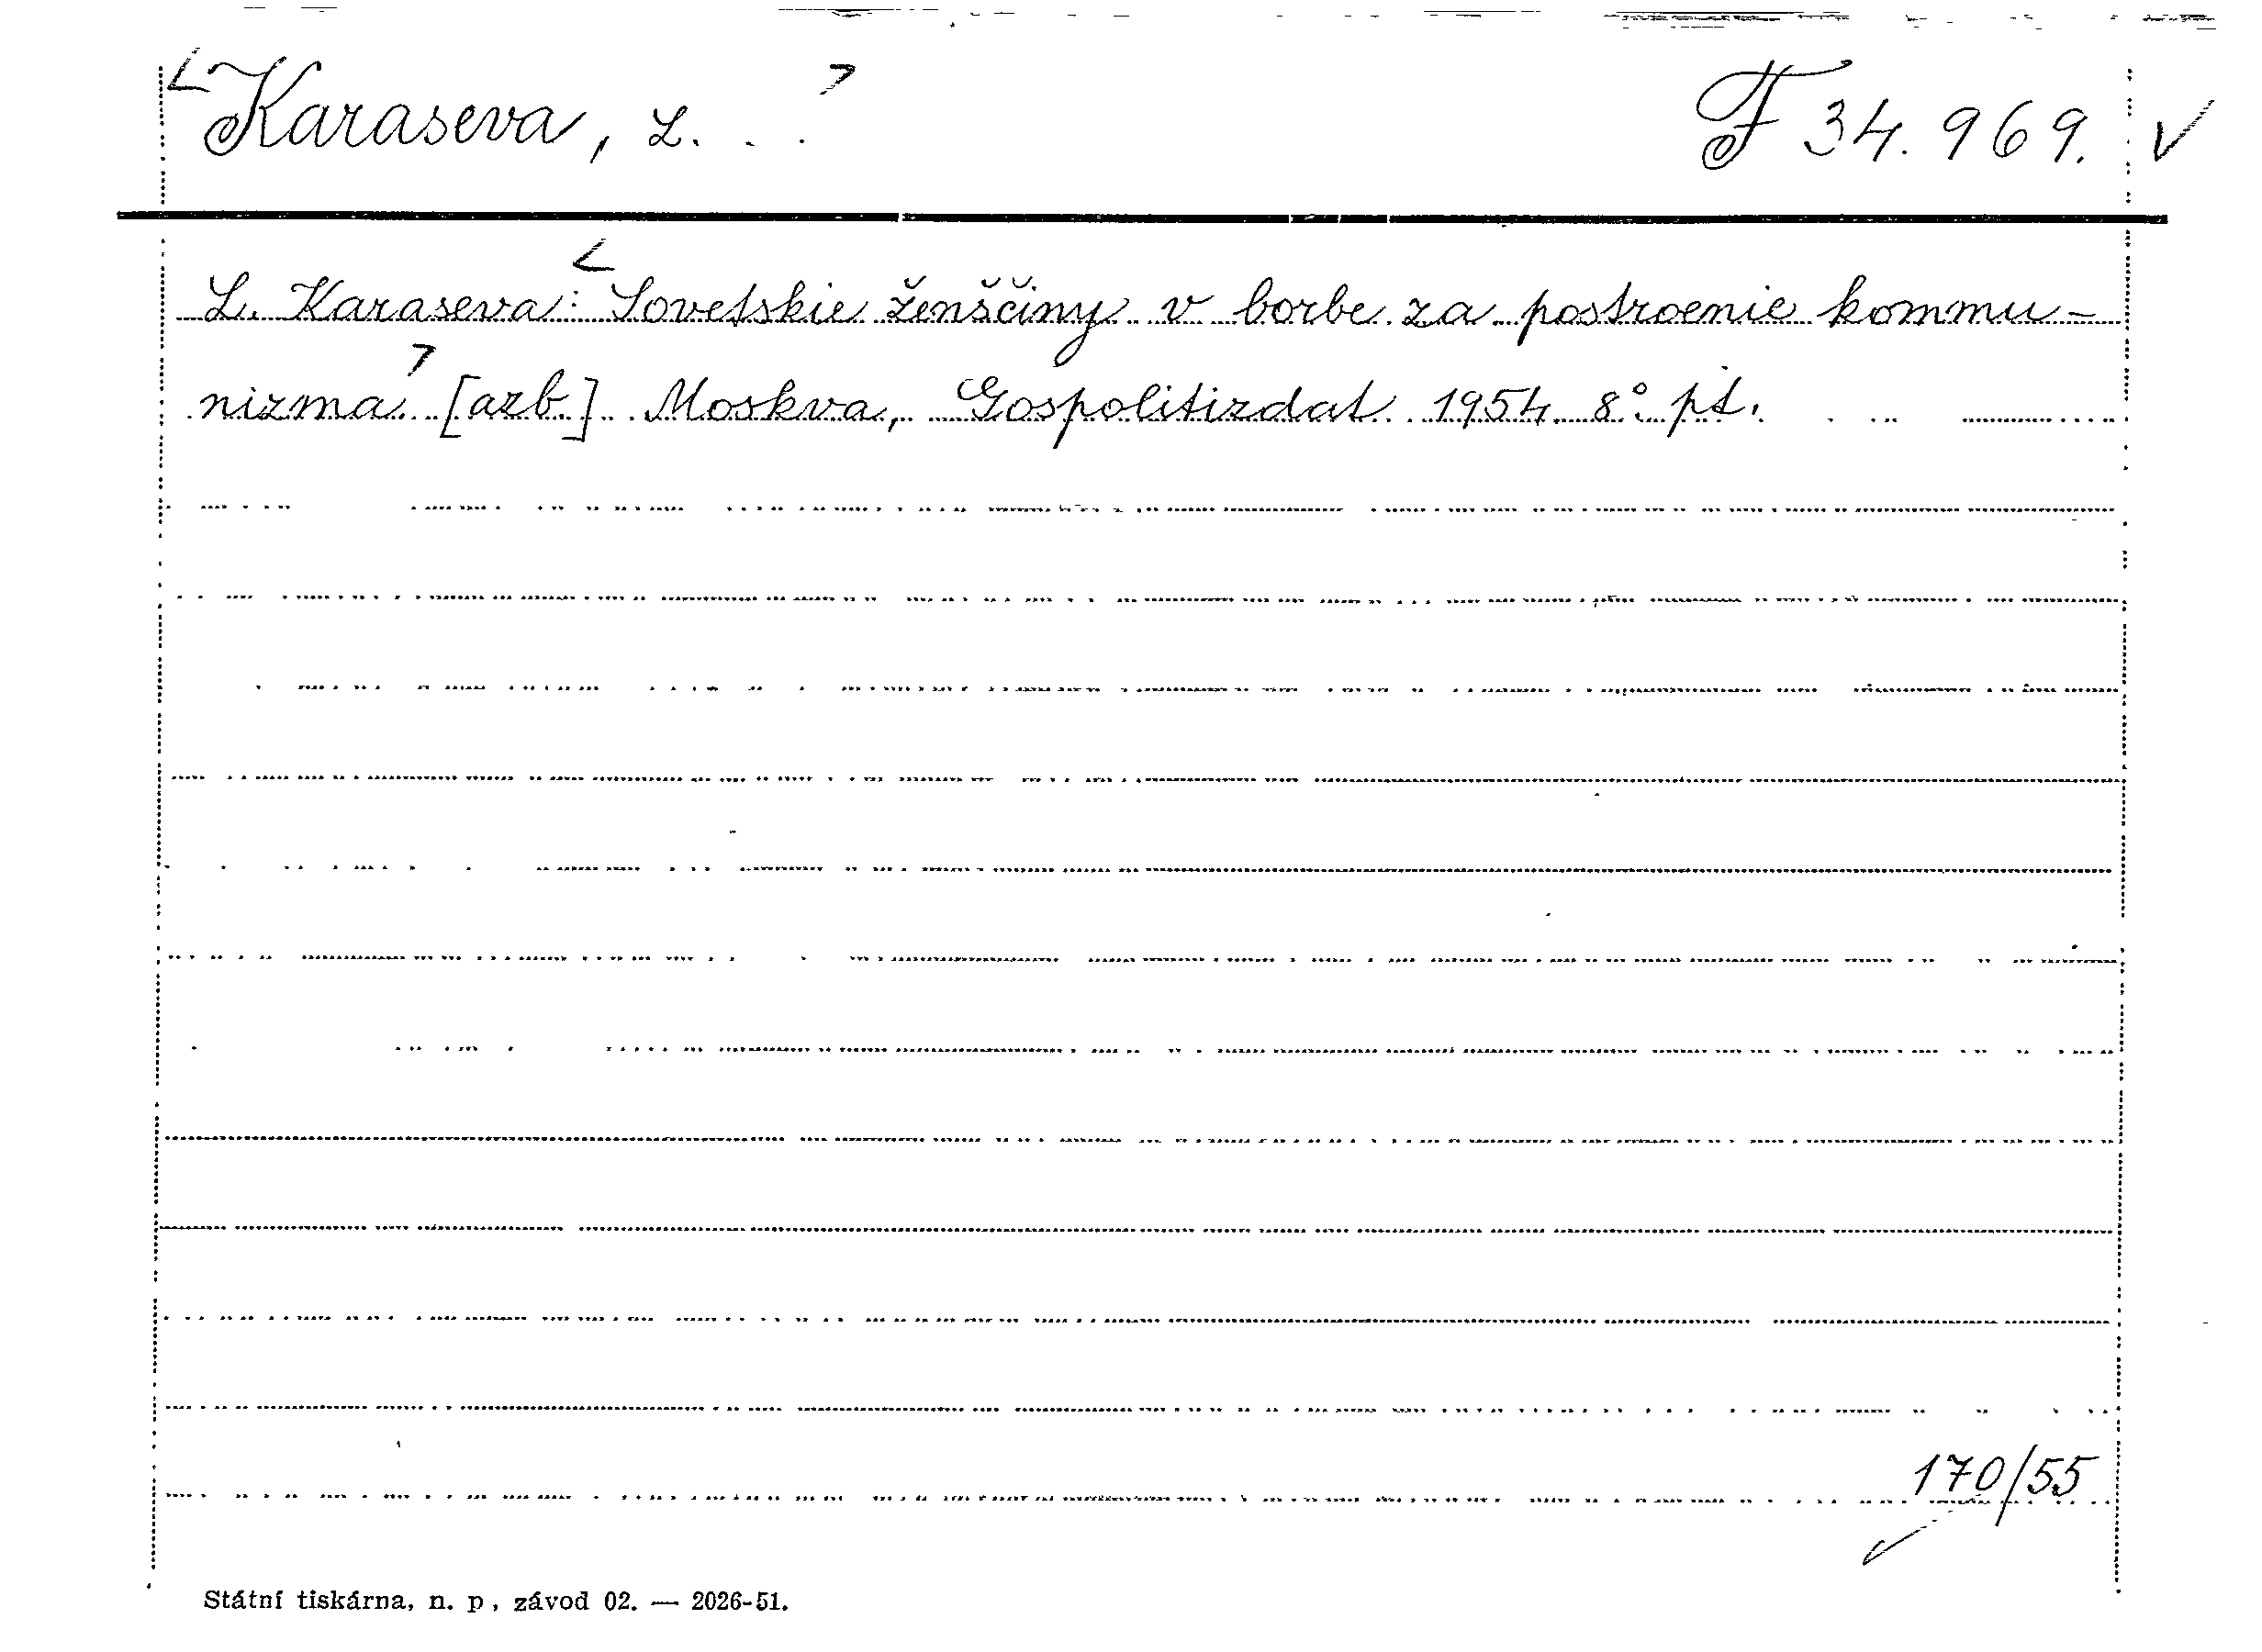 <Karaseva, L. . . >
F 34.969. ✓
L. Karaseva: <Sovetskie ženščiny v borbe za postroenie kommu-
nizma.> [azb.] Moskva, Gospolitizdat 1954. 8°. pt.
170/55
Státní tiskárna, n. p., závod 02. — 2026-51.